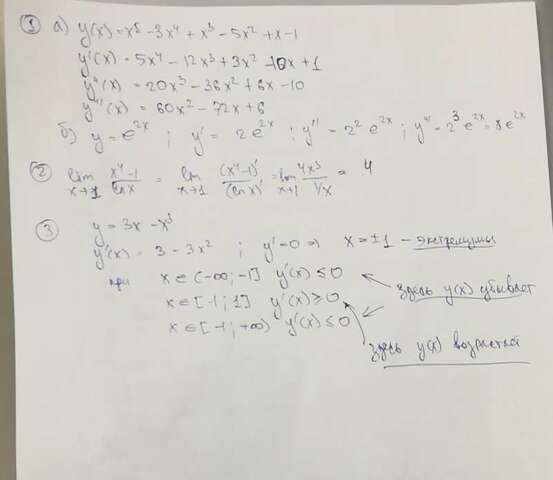 ① а) y(x) = x⁵ - 3x⁴ + x³ - 5x² + x - 1
y'(x) = 5x⁴ - 12x³ + 3x² - 10x + 1
y''(x) = 20x³ - 36x² + 6x - 10
y'''(x) = 60x² - 72x + 6
б) y = e²ˣ ; y' = 2e²ˣ ; y'' = 2² e²ˣ ; y''' = 2³ e²ˣ = 8e²ˣ
② lim x→1 (x⁴-1)/(ln x) = lim x→1 (x⁴-1)'/(ln x)' = lim x→1 4x³/(1/x) = 4
③ y = 3x - x³
y'(x) = 3 - 3x² ; y' = 0 ⇒ x = ±1 - экстремумы
при x ∈ (-∞; -1] y'(x) ≤ 0
здесь y(x) убывает
x ∈ [-1; 1] y'(x) ≥ 0
x ∈ [-1; +∞) y'(x) ≤ 0
здесь y(x) возрастает